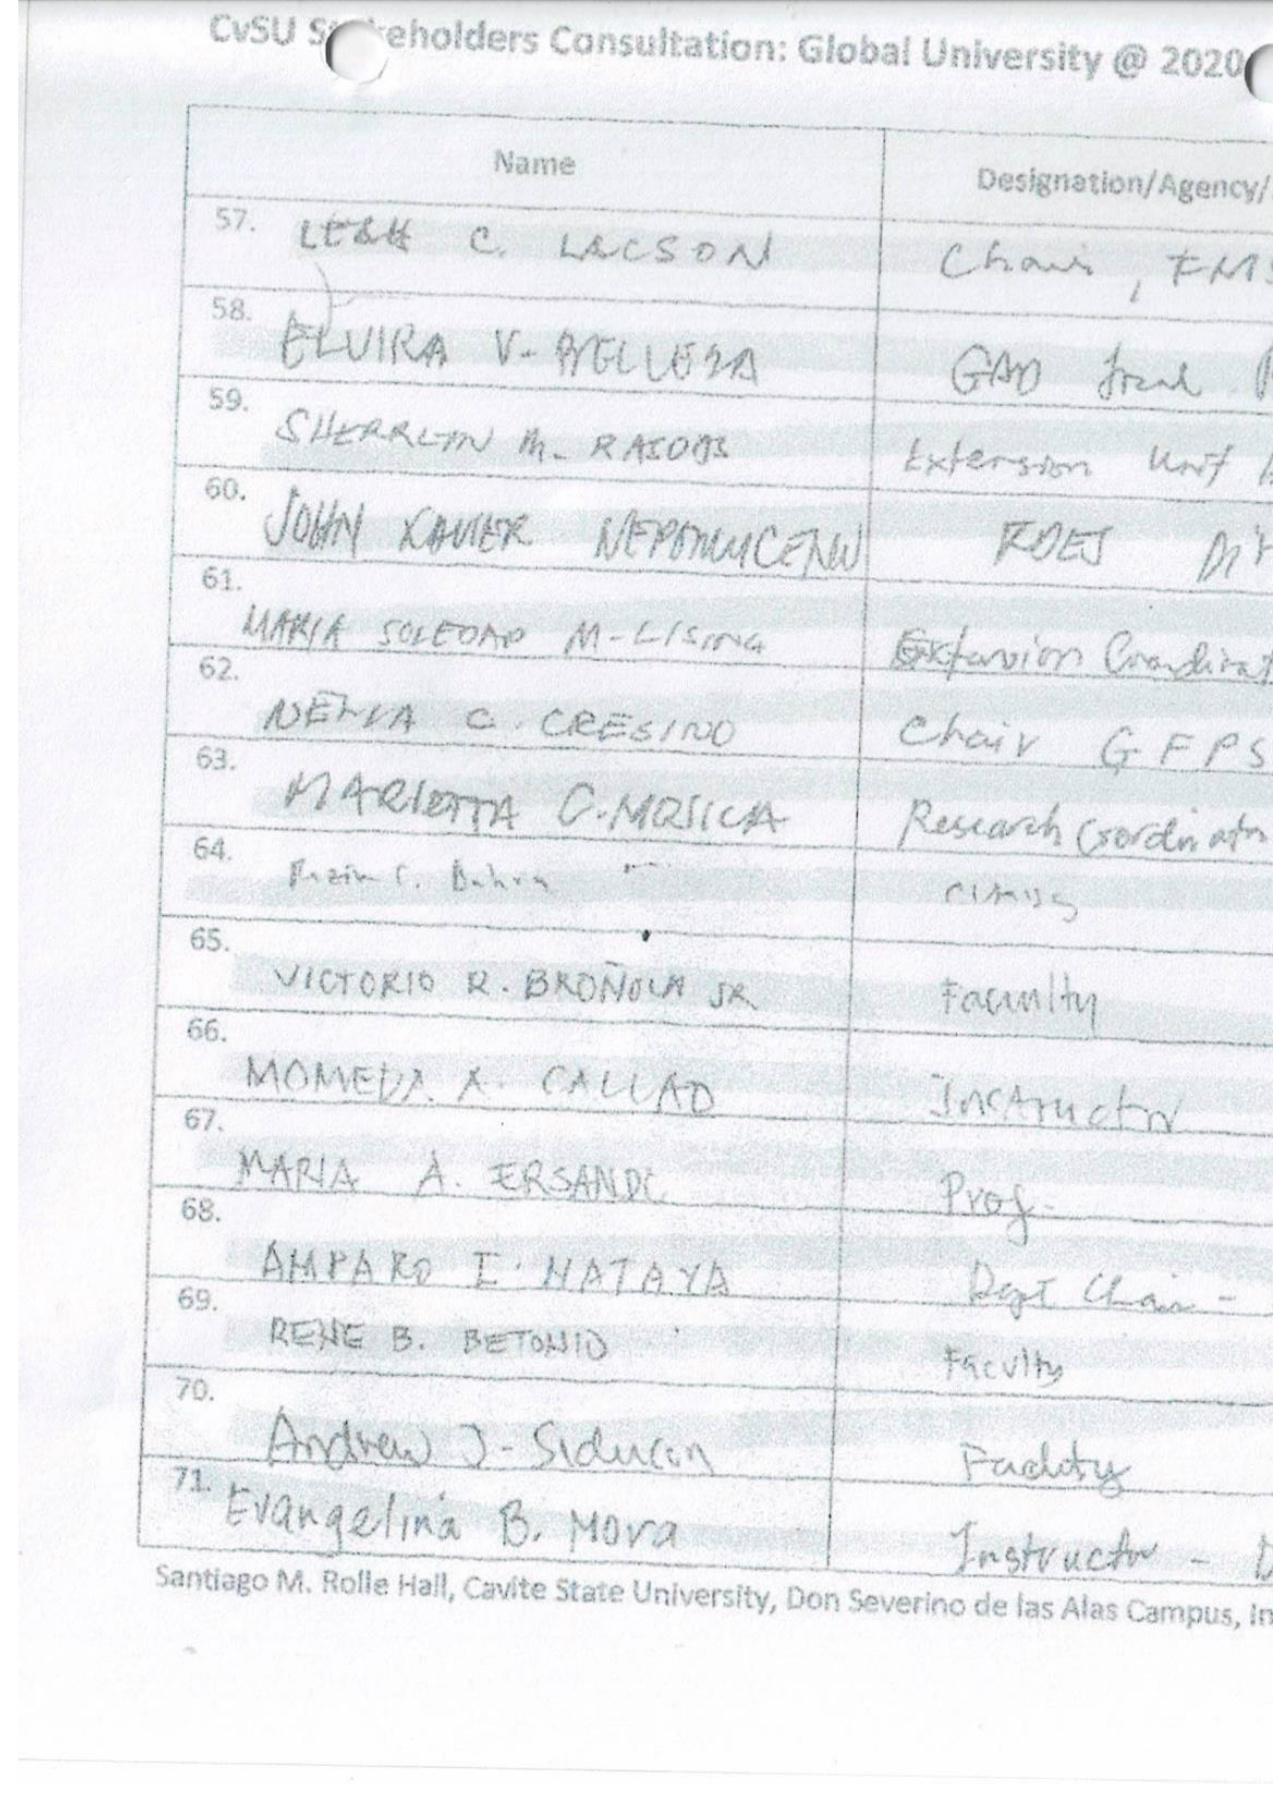 CvSU St eholders Consultation: Global University @ 2020
Name Designation/Agency/
57. LEAH C. LACSON Chair, FMS
58. ELVIRA V. GAD focal P
59. SHERRLYN M. RASOBS Extension Unit
60. JOHN XAVIER NEPOMUCENO RDES Dir
61. MARIA SOLEDAD M. LISING Extension Coordinat
62. NELIA C. CRESINO Chair GFPS
63. MARIETTA C. MOJICA Research Coordinator
64.
65. VICTORIO R. BROÑOLA JR. Faculty
66. MOMEDA A. CALLAD Instructor
67. MARIA A. ERSANDO Prof.
68. AMPARO I. MATAYA Dept Chair -
69. RENE B. BETONIO Faculty
70. Andrew J. Siducon Faculty
71. Evangelina B. Mora Instructor - D
Santiago M. Rolle Hall, Cavite State University, Don Severino de las Alas Campus, In